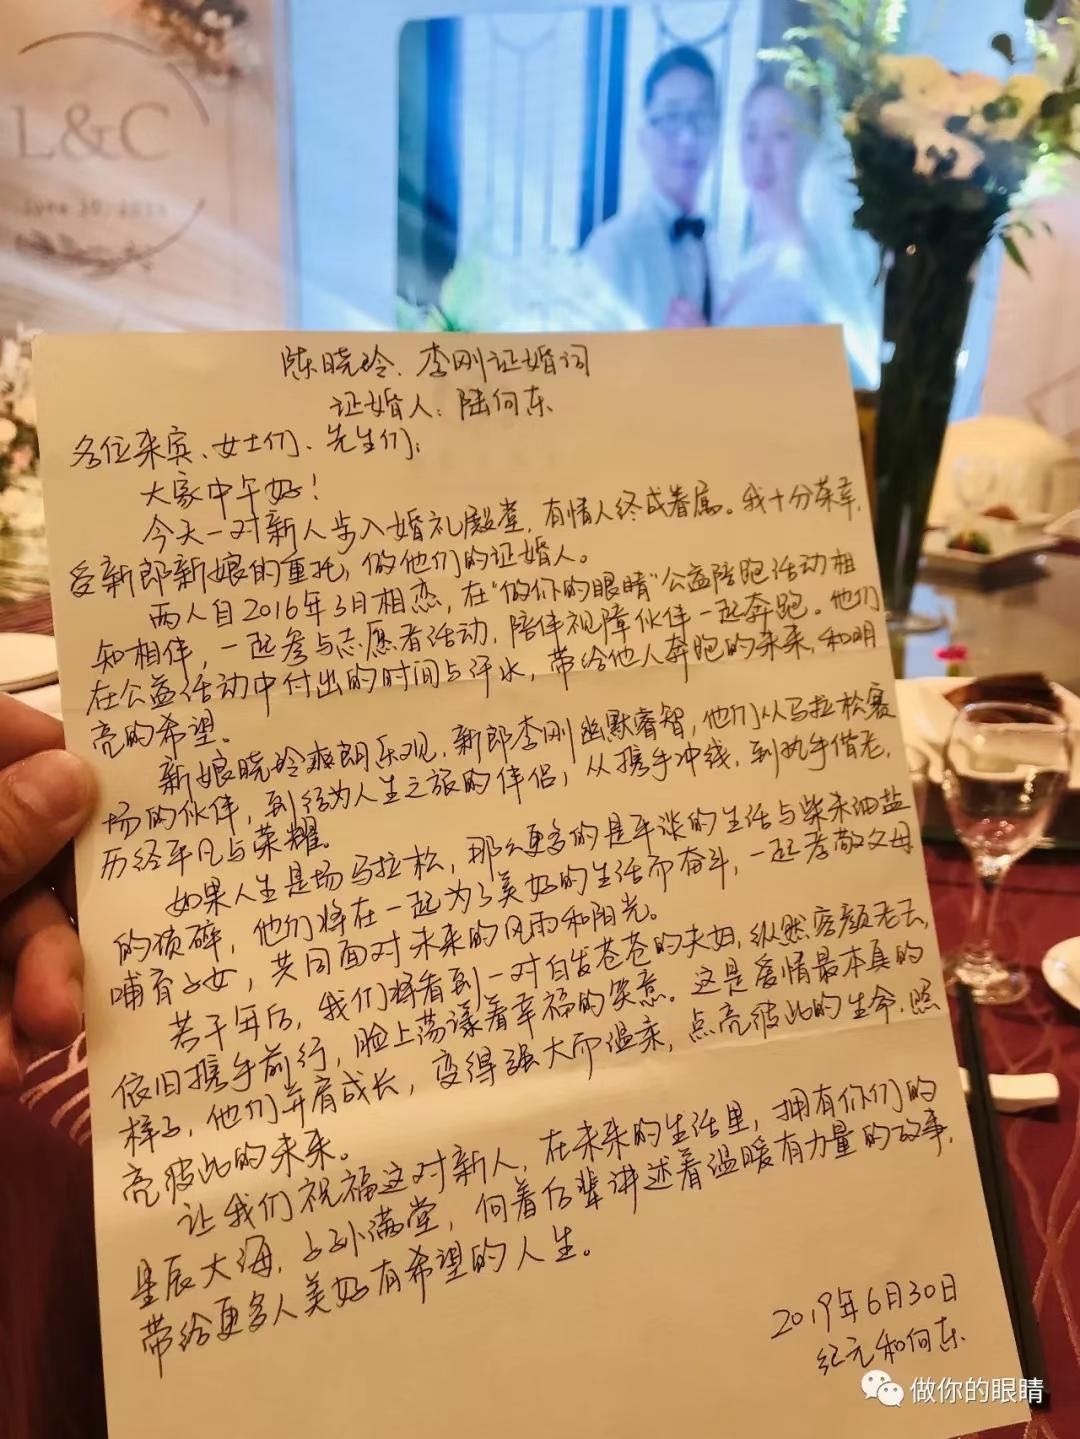 L&C
陈晓玲、李刚证婚词
证婚人：陆向东
各位来宾、女士们、先生们：
大家中午好！
今天一对新人步入婚礼殿堂，有情人终成眷属。我十分荣幸，
受新郎新娘的重托，做他们的证婚人。
两人自2016年3月相恋，在“做你的眼睛”公益陪跑活动相
知相伴，一起参与志愿者活动，陪伴视障伙伴一起奔跑。他们
在公益活动中付出的时间与汗水，带给他人奔跑的未来，和明
亮的希望。
新娘晓玲爽朗乐观，新郎李刚幽默睿智，他们从马拉松赛
场的伙伴，到结为人生之旅的伴侣，从携手冲线，到执手偕老，
历经平凡与荣耀。
如果人生是场马拉松，那么更多的是平淡的生活与柴米油盐
的琐碎，他们将在一起为了美好的生活而奋斗，一起孝敬父母
哺育子女，共同面对未来的风雨和阳光。
若干年后，我们将看到一对白发苍苍的夫妇，纵然容颜老去，
依旧携手前行，脸上荡漾着幸福的笑意。这是爱情最本真的
样子，他们并肩成长，变得强大而温柔，点亮彼此的生命，照
亮彼此的未来。
让我们祝福这对新人，在未来的生活里，拥有你们的
星辰大海，子孙满堂，向着后辈讲述着温暖有力量的故事，
带给更多人美好有希望的人生。
2019年6月30日
纪元和向东
做你的眼睛